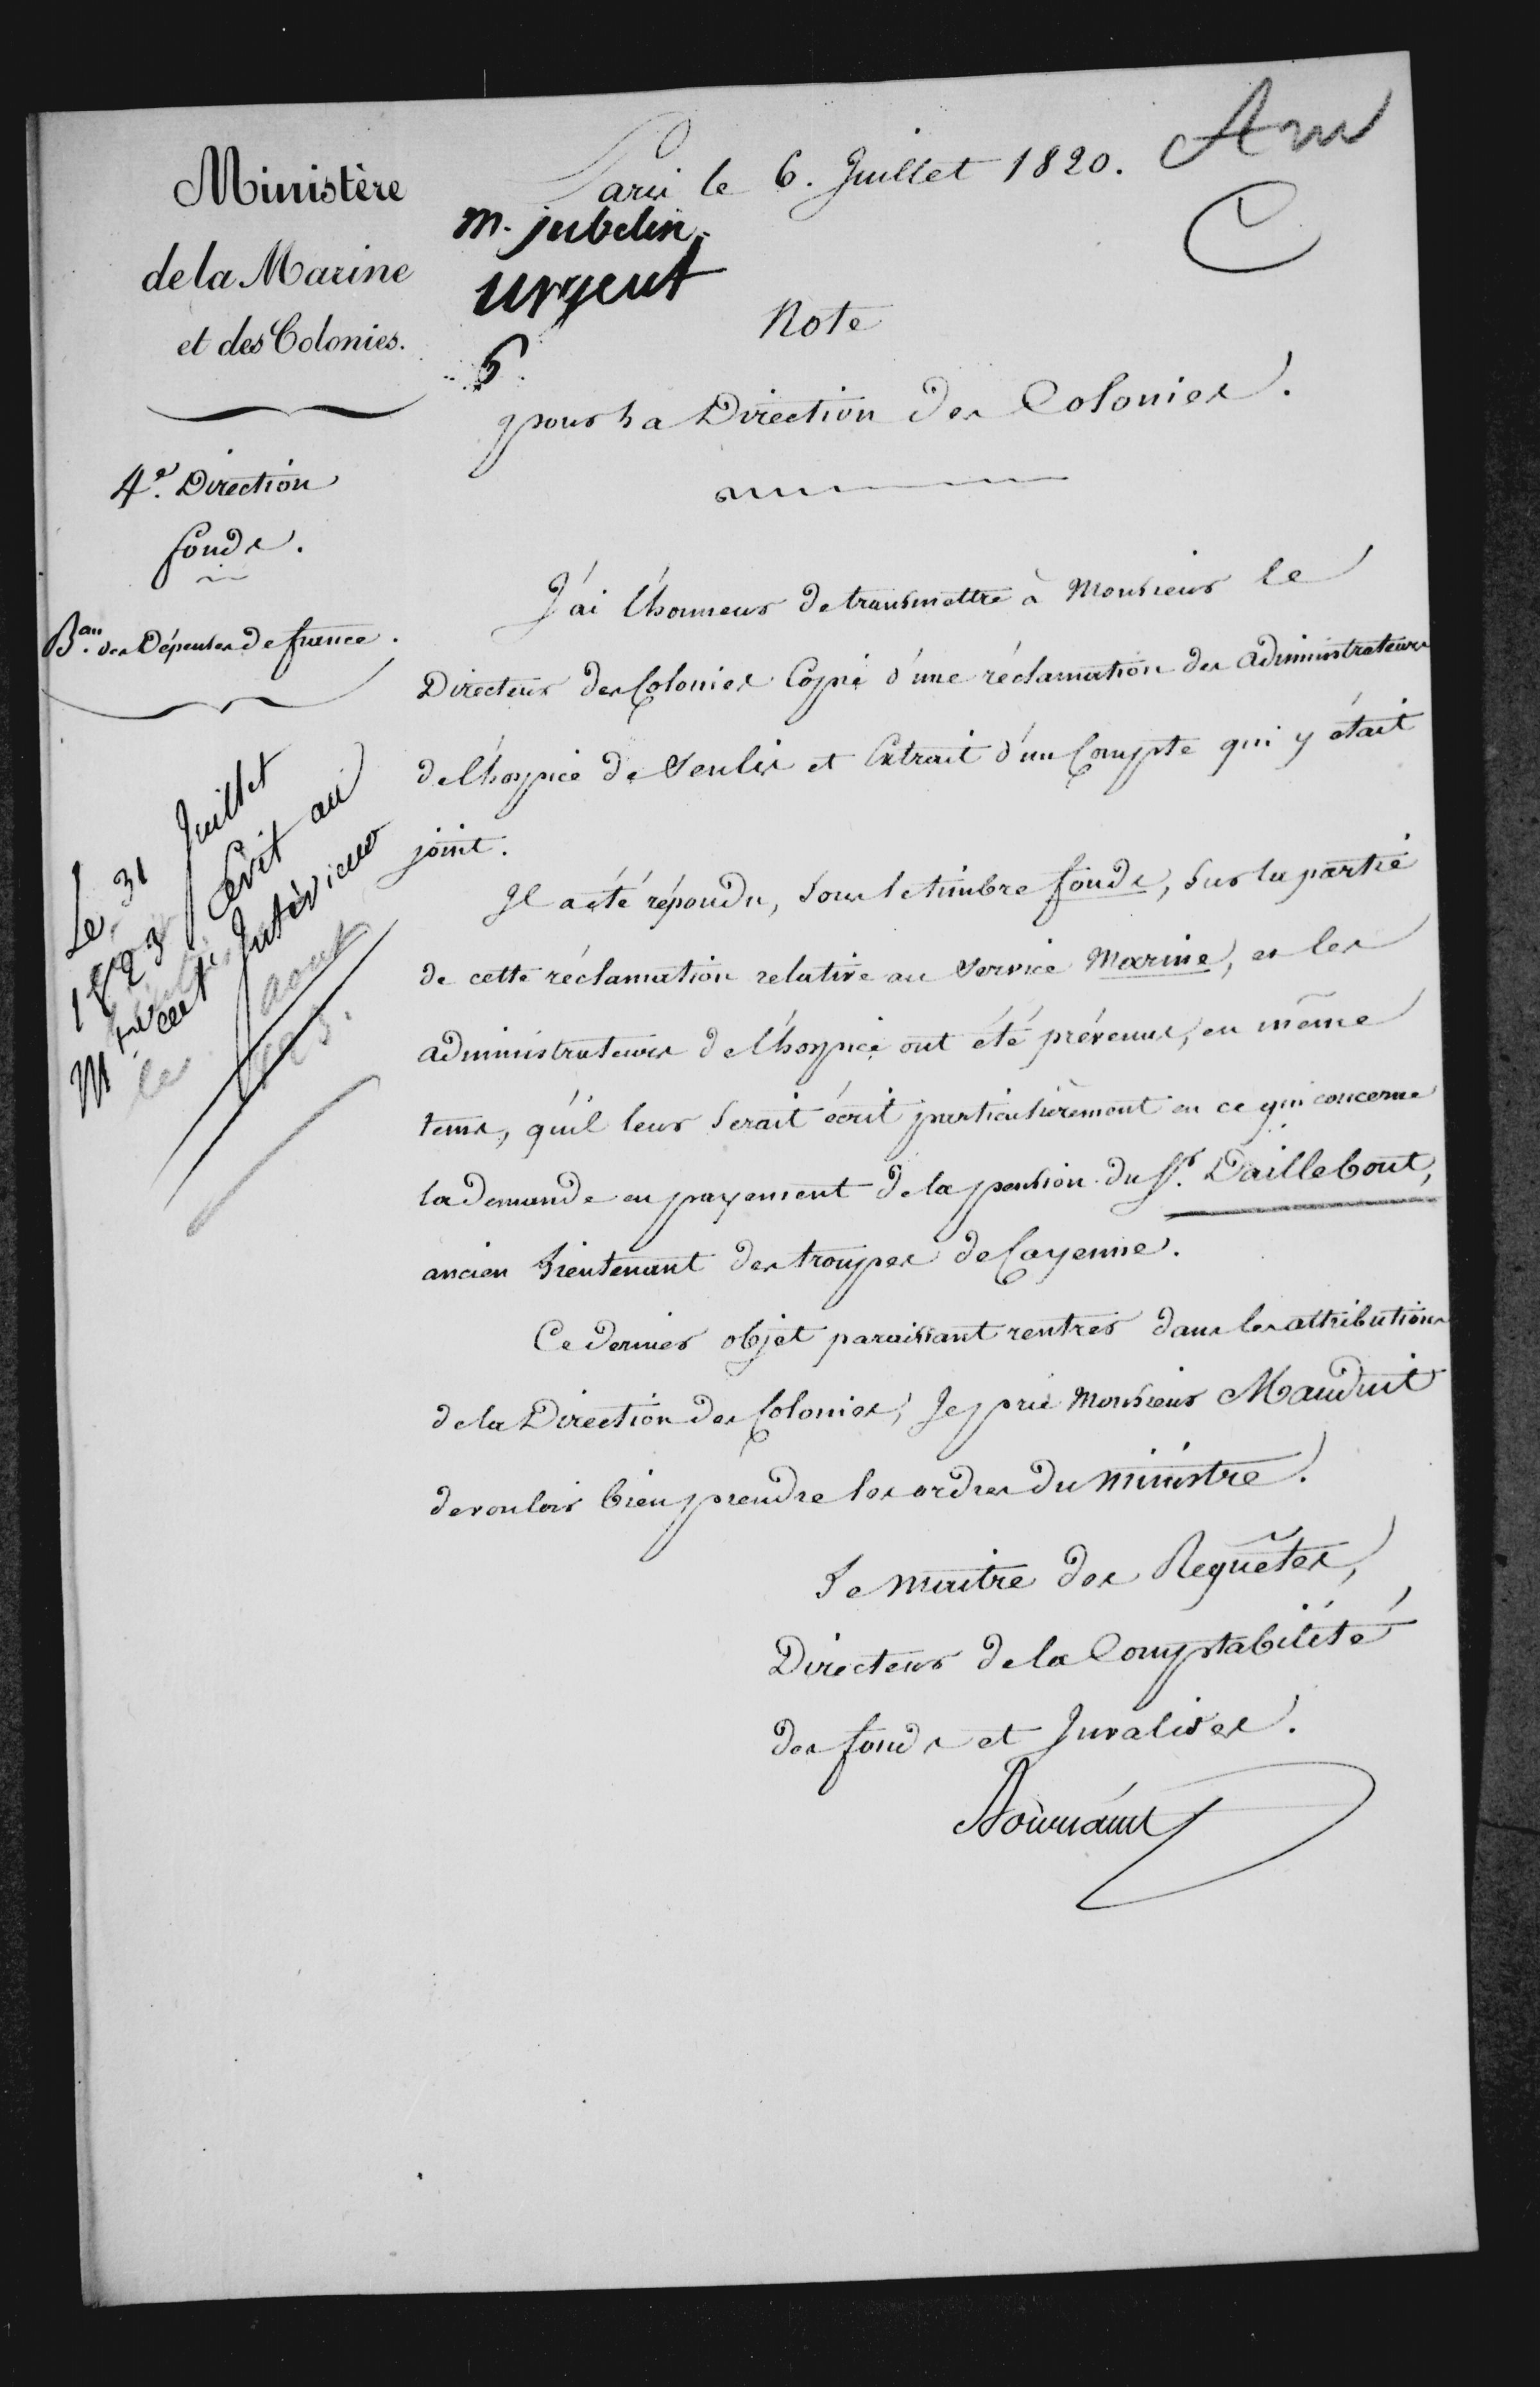 Ministère
de la Marine
et des Colonies.
4e. Direction
fonds.
Bau. des Dépenses de france.
Paris le 6. Juillet 1820.
m. jubelin.
urgent
Note
pour La Direction des Colonies.
J'ai l'honneur de transmettre à Monsieur le
Directeur des Colonies Copie d'une réclamation des administrateurs
de l'hospice de Senlis et Extrait d'un Compte qui y était
joint.
Il a été répondu, sous le timbre fonds, sur la partie
de cette réclamation relative au service Marine, et les
administrateurs de l'hospice ont été prévenus, en même
tems, qu'il leur serait écrit particulièrement en ce qui concerne
la demande en payement de la pension du Sr. Daillebout,
ancien Lieutenant des troupes de Cayenne.
Ce dernier objet paraissant rentrer dans les attributions
de la Direction des Colonies, Je prie Monsieur Mauduit
de vouloir bien prendre les ordres du Ministre.
Le Maitre des Requêtes,
Directeur de la Comptabilité
des fonds et Invalides.
Le 31 Juillet
1823 Ecrit au
Mtre
Intérieur
le
aout